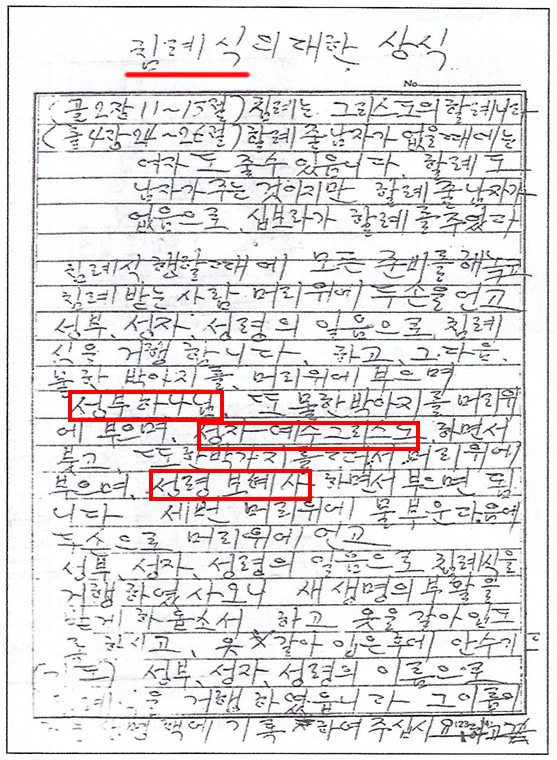 침례식의 대한 상식
No
(골2장 11~15절) 침례는 그리스도의 할례니라
(출4장 24~26절) 할례 줄 남자가 없을 때에는
여자도 줄수 있읍니다. 할례도
남자가 주는 것이지만 할례 줄 남자가
없음으로 십보라가 할례를 주었다
침례식 행할 때에 모든 준비를 해놓고
침례 받는 사람 머리위에 두손을 언고
성부, 성자, 성령의 일음으로 침례
식을 거행 합니다. 하고, 그다음,
물한 박아지를, 머리위에 부으며
성부하나님, 또 물한박아지를 머리위
에 부으며, 성자 예수그리스도, 하면서
붓고, 또한박가지를 머리위에
부으며, 성령 보혜사 하면서 부으면 됩
니다 세번 머리위에 물 부운다음에
두손으로 머리위에 언고
성부, 성자, 성령의 일음으로 침례식을
거행 하였사오니 새 생명의 부활을
하옵소서 하고 옷을 갈아입도
록 하시고, 옷 갈아 입은후에 안수기
도) 성부, 성자, 성령의 이름으로
을 거행 하였읍니다 그이름이
책에 기록 하여 주십시요 하고 끝